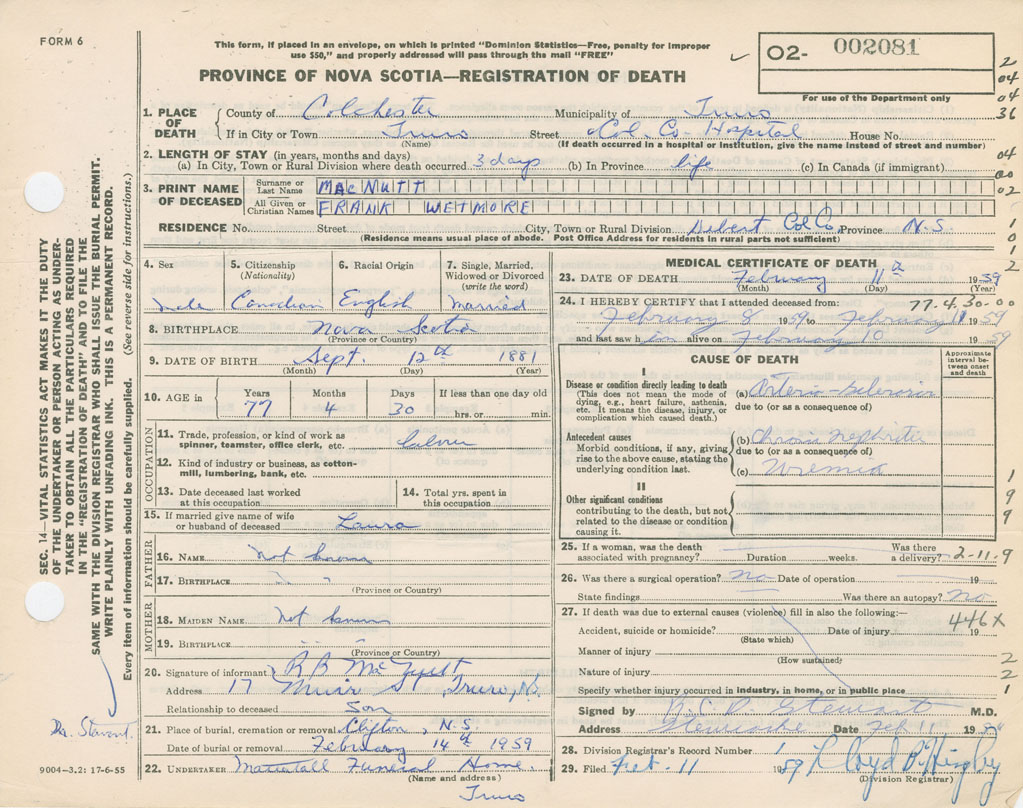 FORM 6
This form, if placed in an envelope, on which is printed "Dominion Statistics—Free, penalty for improper
use $50," and properly addressed will pass through the mail "FREE"
PROVINCE OF NOVA SCOTIA—REGISTRATION OF DEATH
02- 002081
For use of the Department only
2
04
04
36
04
00
02
1
0
1
2
1. PLACE OF DEATH
County of Colchester Municipality of Truro
If in City or Town Truro Street Col. Co. Hospital House No.
(Name) (If death occurred in a hospital or institution, give the name instead of street and number)
2. LENGTH OF STAY (in years, months and days)
(a) In City, Town or Rural Division where death occurred 3 days (b) In Province life (c) In Canada (if immigrant)
3. PRINT NAME OF DECEASED
Surname or Last Name MACNUTT
All Given or Christian Names FRANK WETMORE
RESIDENCE No. Street City, Town or Rural Division Debert Col Co Province N.S.
(Residence means usual place of abode. Post Office Address for residents in rural parts not sufficient)
4. Sex
Male
5. Citizenship (Nationality)
Canadian
6. Racial Origin
English
7. Single, Married, Widowed or Divorced (write the word)
Married
8. BIRTHPLACE Nova Scotia
(Province or Country)
9. DATE OF BIRTH Sept. 12th 1881
(Month) (Day) (Year)
10. AGE in Years Months Days If less than one day old
77 4 30 hrs. or min.
OCCUPATION
11. Trade, profession, or kind of work as spinner, teamster, office clerk, etc. labourer
12. Kind of industry or business, as cotton-mill, lumbering, bank, etc.
13. Date deceased last worked at this occupation
14. Total yrs. spent in this occupation
15. If married give name of wife or husband of deceased Laura
FATHER
16. NAME Not known
17. BIRTHPLACE " "
(Province or Country)
MOTHER
18. MAIDEN NAME Not known
19. BIRTHPLACE " "
(Province or Country)
20. Signature of informant
Address 17 Muir St, Truro, N.S.
Relationship to deceased Son
21. Place of burial, cremation or removal Clifton, N.S.
Date of burial or removal February 14th 1959
22. UNDERTAKER Mattatall Funeral Home
(Name and address)
Truro
MEDICAL CERTIFICATE OF DEATH
23. DATE OF DEATH February 11th 1959
(Month) (Day) (Year)
24. I HEREBY CERTIFY that I attended deceased from: 77.4.30-00
February 8 1959 to February 11 1959
and last saw him alive on February 10 1959
CAUSE OF DEATH
Approximate interval between onset and death
I
Disease or condition directly leading to death
(This does not mean the mode of dying, e.g., heart failure, asthenia, etc. It means the disease, injury, or complication which caused death.)
(a) Arterio-sclerosis
due to (or as a consequence of)
Antecedent causes
Morbid conditions, if any, giving rise to the above cause, stating the underlying condition last.
(b) Chronic Nephritis
due to (or as a consequence of)
(c) Uremia
II
Other significant conditions
contributing to the death, but not related to the disease or condition causing it.
1
9
9
25. If a woman, was the death associated with pregnancy? Duration weeks. Was there a delivery? 2-11-9
26. Was there a surgical operation? no Date of operation 19
State findings Was there an autopsy? no
27. If death was due to external causes (violence) fill in also the following:—
446X
Accident, suicide or homicide? Date of injury 19
(State which)
Manner of injury 2
(How sustained)
Nature of injury 2
Specify whether injury occurred in industry, in home, or in public place 1
Signed by R.C.D. Stewart M.D.
Address Stewiacke Date Feb 11 1959
28. Division Registrar's Record Number 1
29. Filed Feb - 11 1959
(Division Registrar)
SEC. 14—VITAL STATISTICS ACT MAKES IT THE DUTY
OF THE UNDERTAKER OR PERSON ACTING AS UNDER-
TAKER TO OBTAIN ALL THE PARTICULARS REQUIRED
IN THE "REGISTRATION OF DEATH" AND TO FILE THE
SAME WITH THE DIVISION REGISTRAR WHO SHALL ISSUE THE BURIAL PERMIT.
WRITE PLAINLY WITH UNFADING INK. THIS IS A PERMANENT RECORD.
Every item of information should be carefully supplied. (See reverse side for instructions.)
Dr. Stewart
9004-3.2: 17-6-55